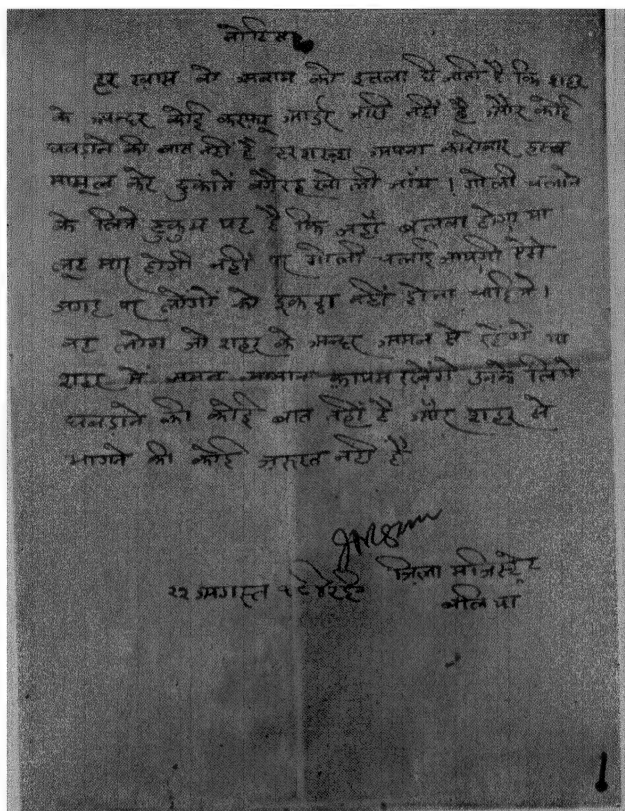 नोटिस
हर खास वो अवाम को इत्तला दी जाती है कि शहर
के अन्दर कोई करफ्यू आर्डर जारी नहीं है और कोई
घबड़ाने की बात नहीं है हर शख्श अपना कारोबार हस्ब
मामूल करे दुकानें वगैरह खोली जाँय । गोली चलाने
के लिये हुकुम यह है कि जहाँ बलवा होगा या
लूट मार होगी वहीं पर गोली चलाई जायगी ऐसी
जगह पर लोगों को इकट्ठा नहीं होना चाहिये ।
वह लोग जो शहर के अन्दर अमन से रहेंगे या
शहर में अमन अमान कायम रखेंगे उनके लिये
घबड़ाने की कोई बात नहीं है और शहर से
भागने की कोई जरूरत नहीं है
जिला मजिस्ट्रेट
२२ अगस्त १९४२ई०
बलिया